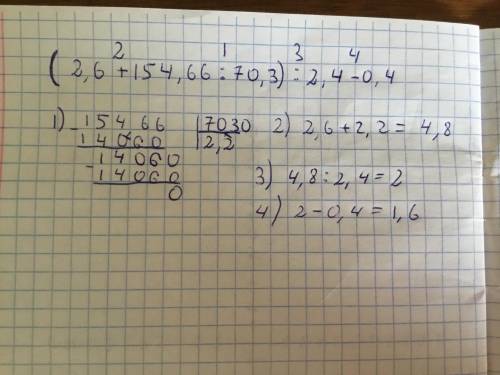 2 1 3 4
(2,6 + 154,66 : 70,3) : 2,4 - 0,4
1) 15466 | 7030 2) 2,6 + 2,2 = 4,8
- 14060 | 2,2
14060
- 14060 3) 4,8 : 2,4 = 2
0
4) 2 - 0,4 = 1,6